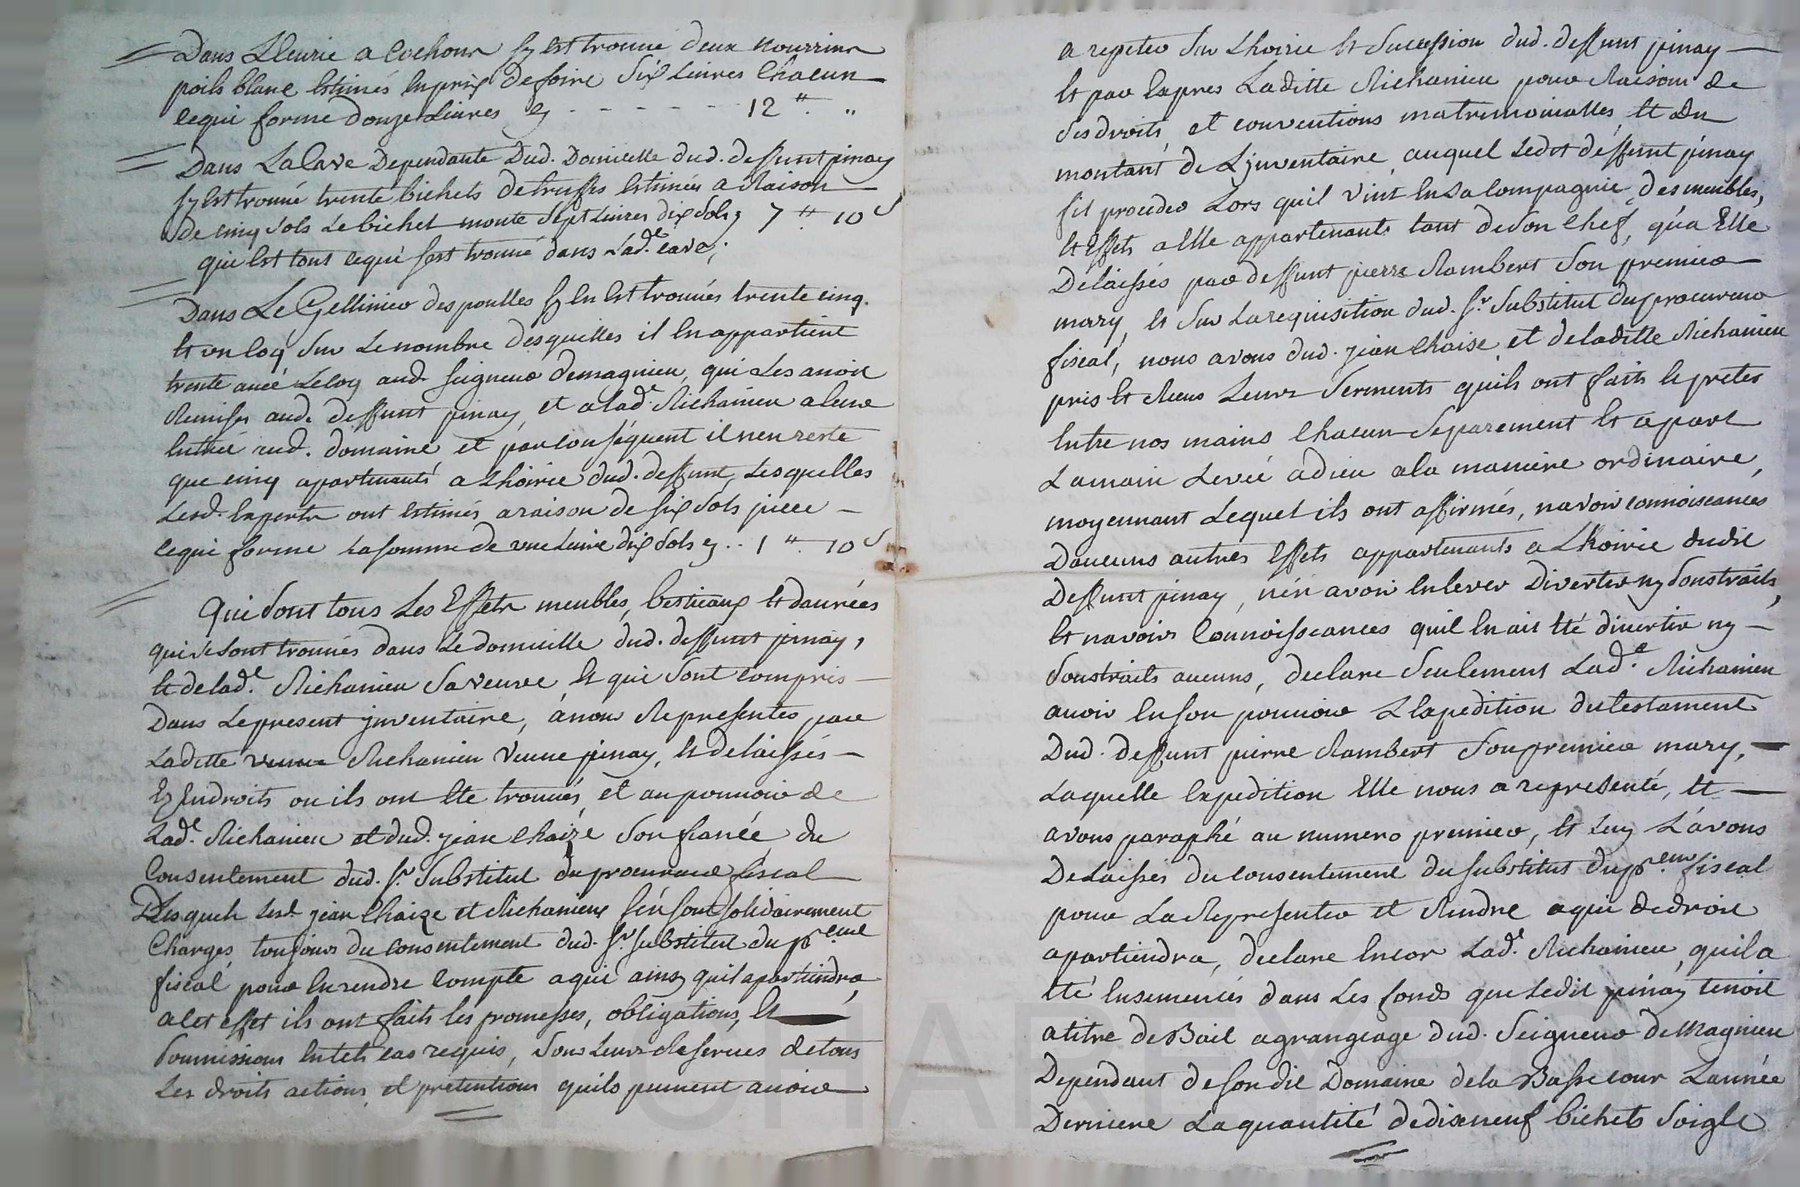 Dans Lecurie a Cochons sy est trouvé deux nourrins
poils blanc Estimés Enprix defoire Six Livres Chacun
cequi forme douze Livres cy - - - - - - 12 " "
Dans La Cave Dependante Dud. Domicille dud. deffunt pinay
sy est trouvé trente bichets detruffes Estimés a Raison
de cinq Sols Le bichet monte Sept Livres dix Sols cy 7 " 10 s
qui Est tout cequi sest trouvé dans Lad.e cave;
Dans Le Gellinier despoulles sy En Est trouvés trente cinq
Et un Coq Sur Le nombre desquelles il En appartient
trente avec Le Coq aud. Seigneur demagnieu, qui Les avoit
Remises aud. deffunt pinay et alad.e Richanieu a leur
Entrée aud. domaine et par conséquent il nen reste
que cinq apartenants a Lhoirie dud. deffunt, Lesquelles
Lesd. Experts ont Estimés a raison de six Sols piece
cequi forme La somme de une Livre dix Sols cy .. 1 " 10 s
Qui Sont tous Les Effets meubles, bestiaux Et danrées
qui se Sont trouvés dans Le domicille dud. deffunt pinay,
Et delad.e Richanieu Sa veuve, Et qui Sont compris
Dans Le present jnventaire, anous Representés par
Laditte Richanieu Veuve pinay, Et delaissés
Es Endroits ou ils ont Eté trouvés, et au pouvoir de
Lad.e Richanieu et dud. jean Chaize Son fiancé du
Consentement dud. Sr. Substitut du procureur fiscal
Desquels Lesd. jean Chaize et Richanieu Sen Sont Solidairement
Chargés toujours du consentement dud. Sr. Substitut du pr.eur
fiscal pour En rendre Compte a qui ainsy quil apartiendra,
a Cet effet ils ont faits les promesses, obligations, Et
Soumissions En tels cas requis, Sous Leurs Reserves detous
Les droits actions, et pretentions quils peuvent avoir
a repeter Sur Lhoirie Et Succession dud. deffunt pinay
Et par Expres Laditte Richanieu pour Raison de
Ses droits, et conventions matrimonialles, Et du
montant de Ljnventaire, auquel Ledit déffunt pinay
fit proceder Lors quil vint En Sa Compagnie, des meubles,
Et Effets a Elle appartenants tant de Son Chef, qu'a Elle
Délaissés par deffunt pierre Rambert Son premier
mary, Et Sur Larequisition dud. Sr. Substitut du procureur
fiscal, nous avons dud. jean Chaise, et de laditte Richanieu
pris Et Recus Leurs Serments quils ont faits Et pretés
Entre nos mains Chacun Separement Et a part
La main Levée a dieu a la maniere ordinaire,
moyennant Lequel ils ont affirmés, navoir connoissances
Daucuns autres Effets appartenants a Lhoirie dudit
Deffunt pinay, nén avoir Enlever Divertir ny Soustraits,
Et navoir Connoissances quil En ait Eté divertir ny
Soustraits aucuns, declare Seulement Lad.e Richanieu
avoir En Son pouvoir LExpedition du testament
Dud. deffunt pierre Rambert Son premier mary,
Laquelle Expedition Elle nous a representé, Et
avons paraphé au numero premier, Et Luy L'avons
Delaissés du consentement du substitut du pr.eur fiscal
pour La Representer et Rendre a qui de droit
apartiendra, declare Encor Lad.e Richanieu, quil a
Eté Ensemencés dans Les fonds que Ledit pinay tenoit
atitre de Bail agrangeage dud. Seigneur de Magnieu
Dependant de Son dit Domaine dela Basse cour Lannée
Derniere La quantité de dixneuf bichets Soigle